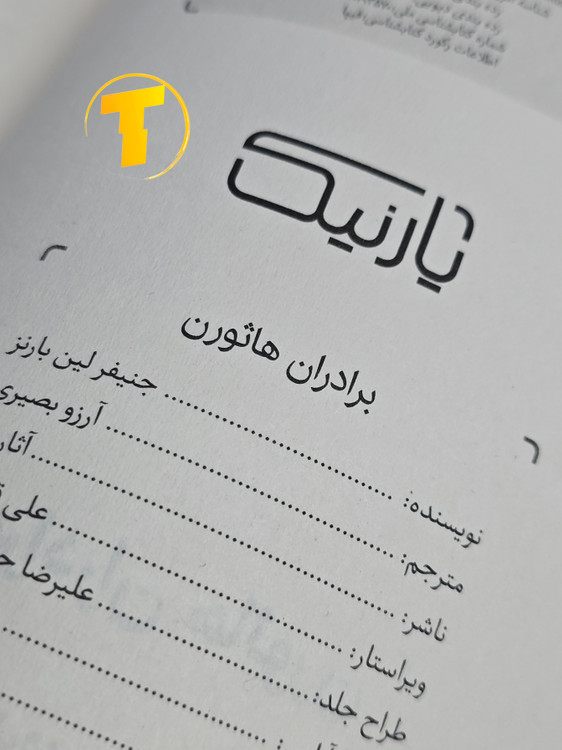 شماره کتابشناسی ملی:
اطلاعات رکورد کتابشناسی: فیپا
T
نارنیک
برادران هاثورن
نویسنده: جنیفر لین بارنز
مترجم: آرزو بصیری
ناشر:
ویراستار: علی
طراح جلد: علیرضا